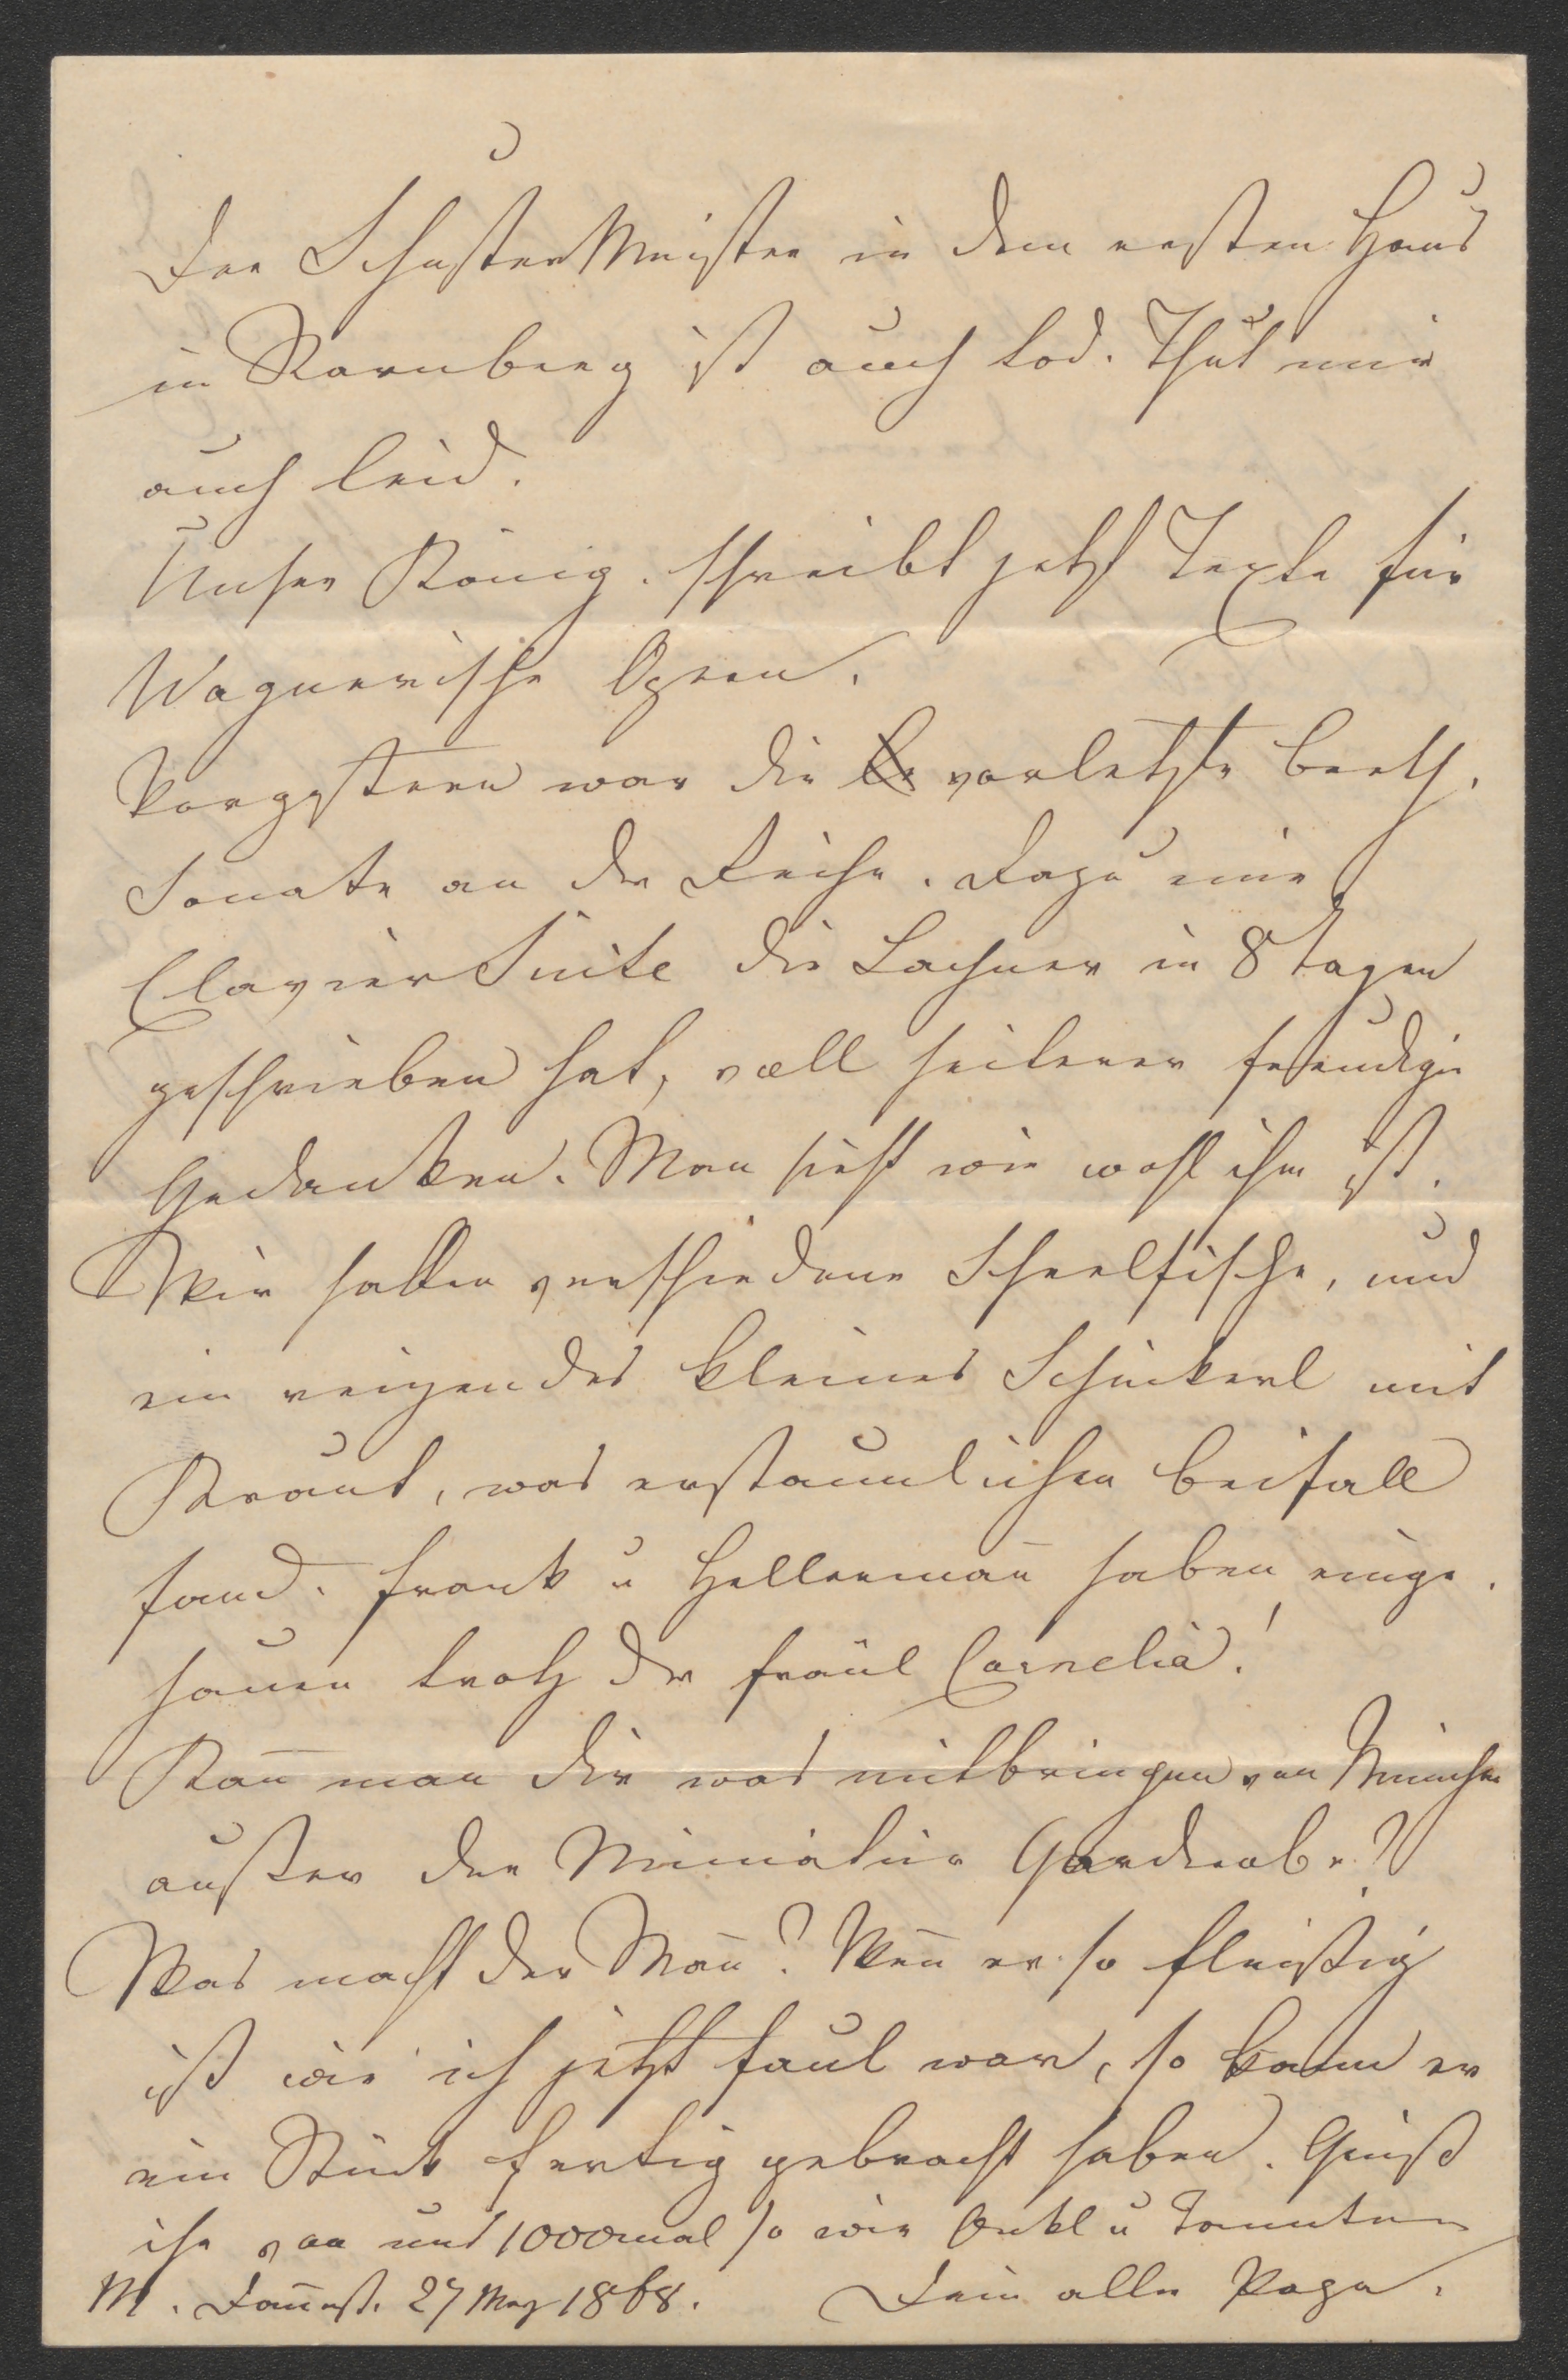 Der Schuster Meister in dem ersten Haus
in Starnberg ist auch tod. Thut mir
auch leid.
Unser König schreibt jetzt Texte für
Wagnerische Opern.
Vorgestern war die vorletzte Beeth.
Sonate an der Reihe. Dazu eine
Clavier Suite die Lachner in 8 Tagen
geschrieben hat, voll heiterer freudiger
Gedanken. Man sieht wie wohl ihm ist.
Wir hatten verschiedene Schellfische, und
ein reizendes kleines Schinkerl mit
Kraut, was erstaunlichen Beifall
fand. Frank u Hellerman̄ haben einge-
hauen trotz der Fräul Cornelia!
Kan̄ man dir was mitbringen von München
außer der Miniatür Garderobe?
Was macht der Man̄? Wen̄ er so fleißig
ist wie ich jetzt faul war, so kann er
ein Stück fertig gebracht haben. Grüß
ihn von uns 1000mal so wie Onkl u Tannten
M. 27 May 1868. Dein alter Papa.